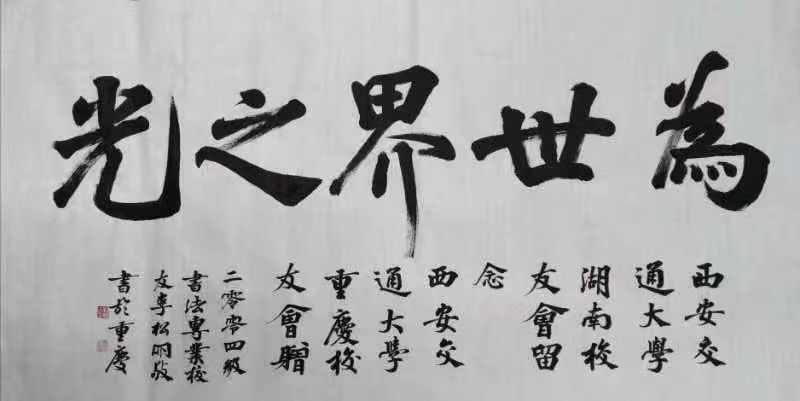 為世界之光
西安交
通大學
湖南校
友會留
念
西安交
通大學
重慶校
友會贈
二零零四級
書法專業校
友李松明敬
書於重慶